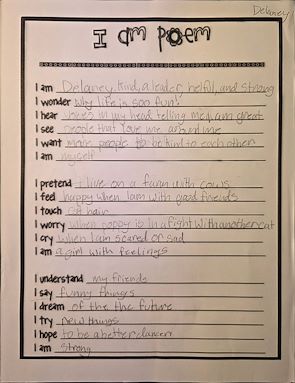 Delaney
I am poem
I am Delaney, kind, a leader helful, and strong
I wonder why life is soo fun!
I hear voices in my head telling me I am great
I see people that love me around me
I want more people to be kind to each other
I am myself
I pretend I live on a farm with cows
I feel happy when I am with good friends
I touch cat hair
I worry when poppy is in a fight with another cat
I cry when I am scared or sad
I am a girl with feelings
I understand my friends
I say funny things
I dream of the the future
I try new things
I hope to be a better dancer
I am strong